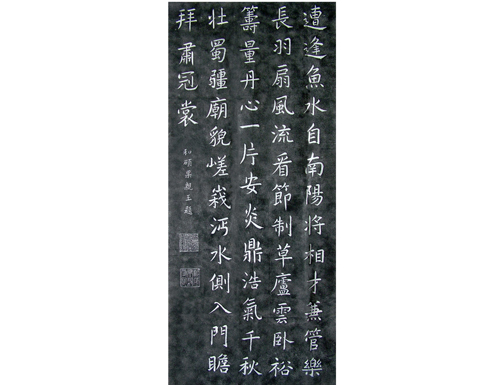 遭逢魚水自南陽將相才兼管樂
長羽扇風流看節制草廬雲臥裕
籌量丹心一片安炎鼎浩氣千秋
壯蜀疆廟貌嵯峩沔水側入門瞻
拜肅冠裳
和碩果親王題